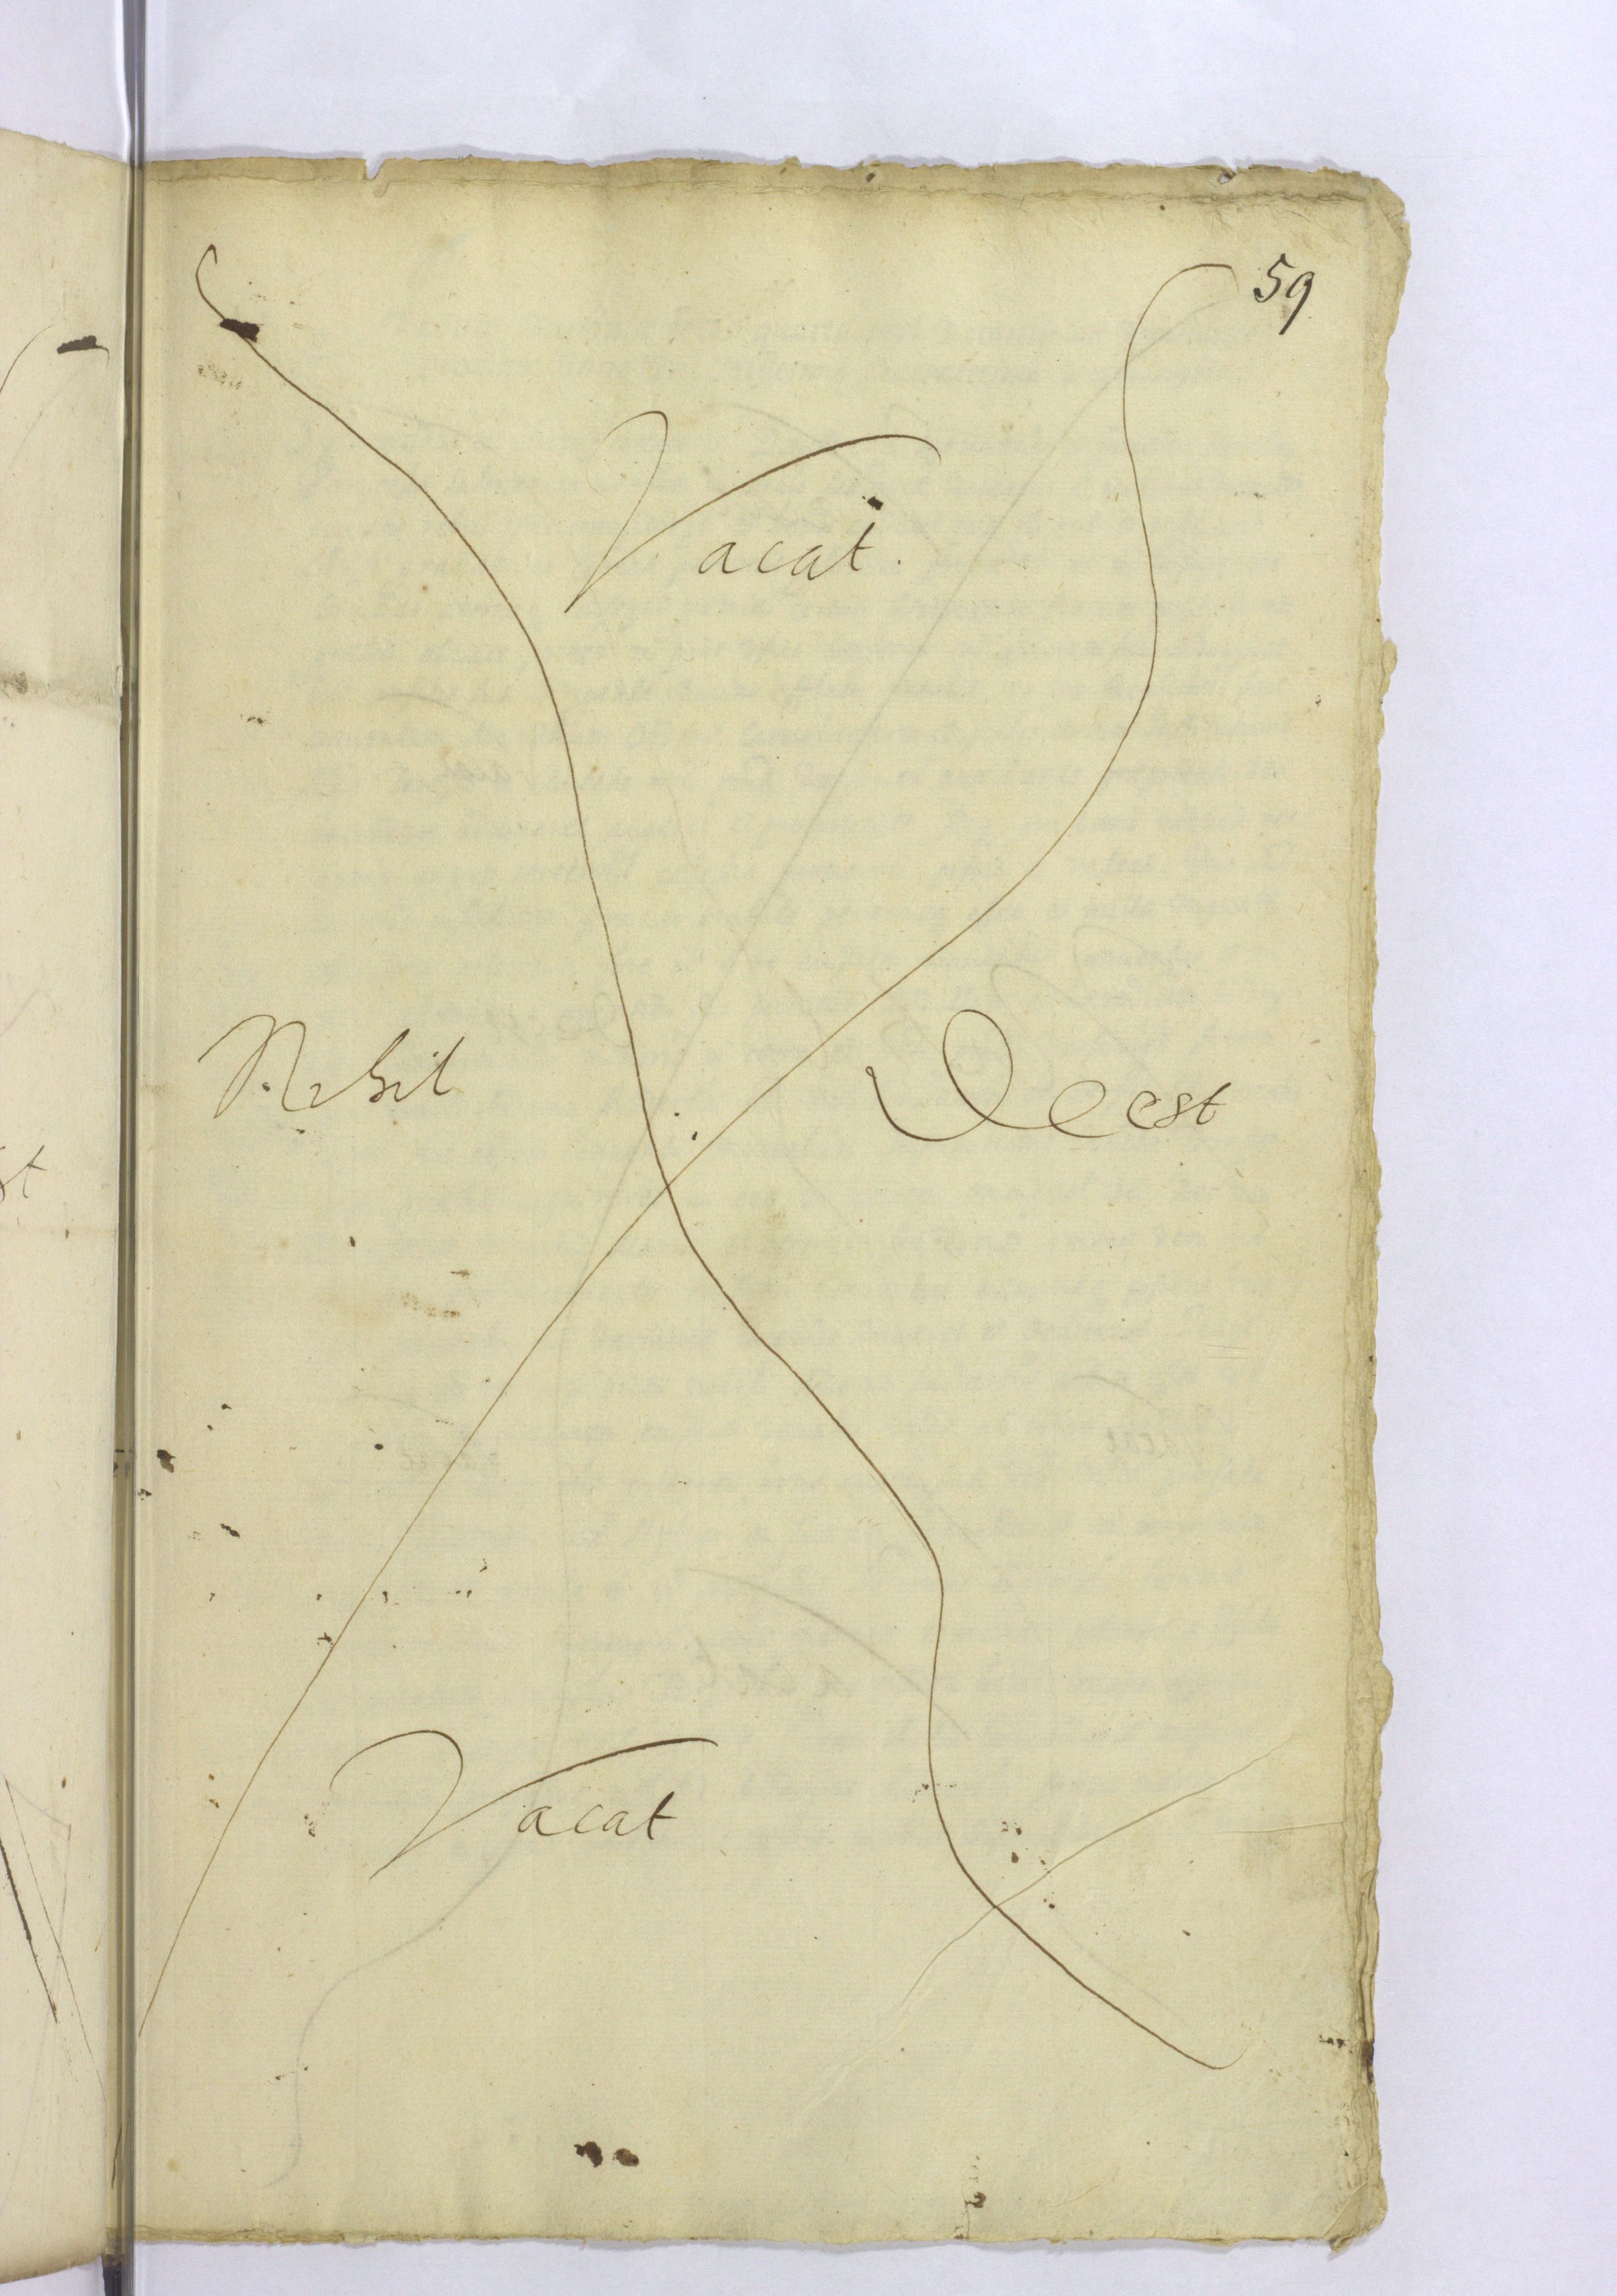 59
Vacat.
Nihil Deest
Vacat